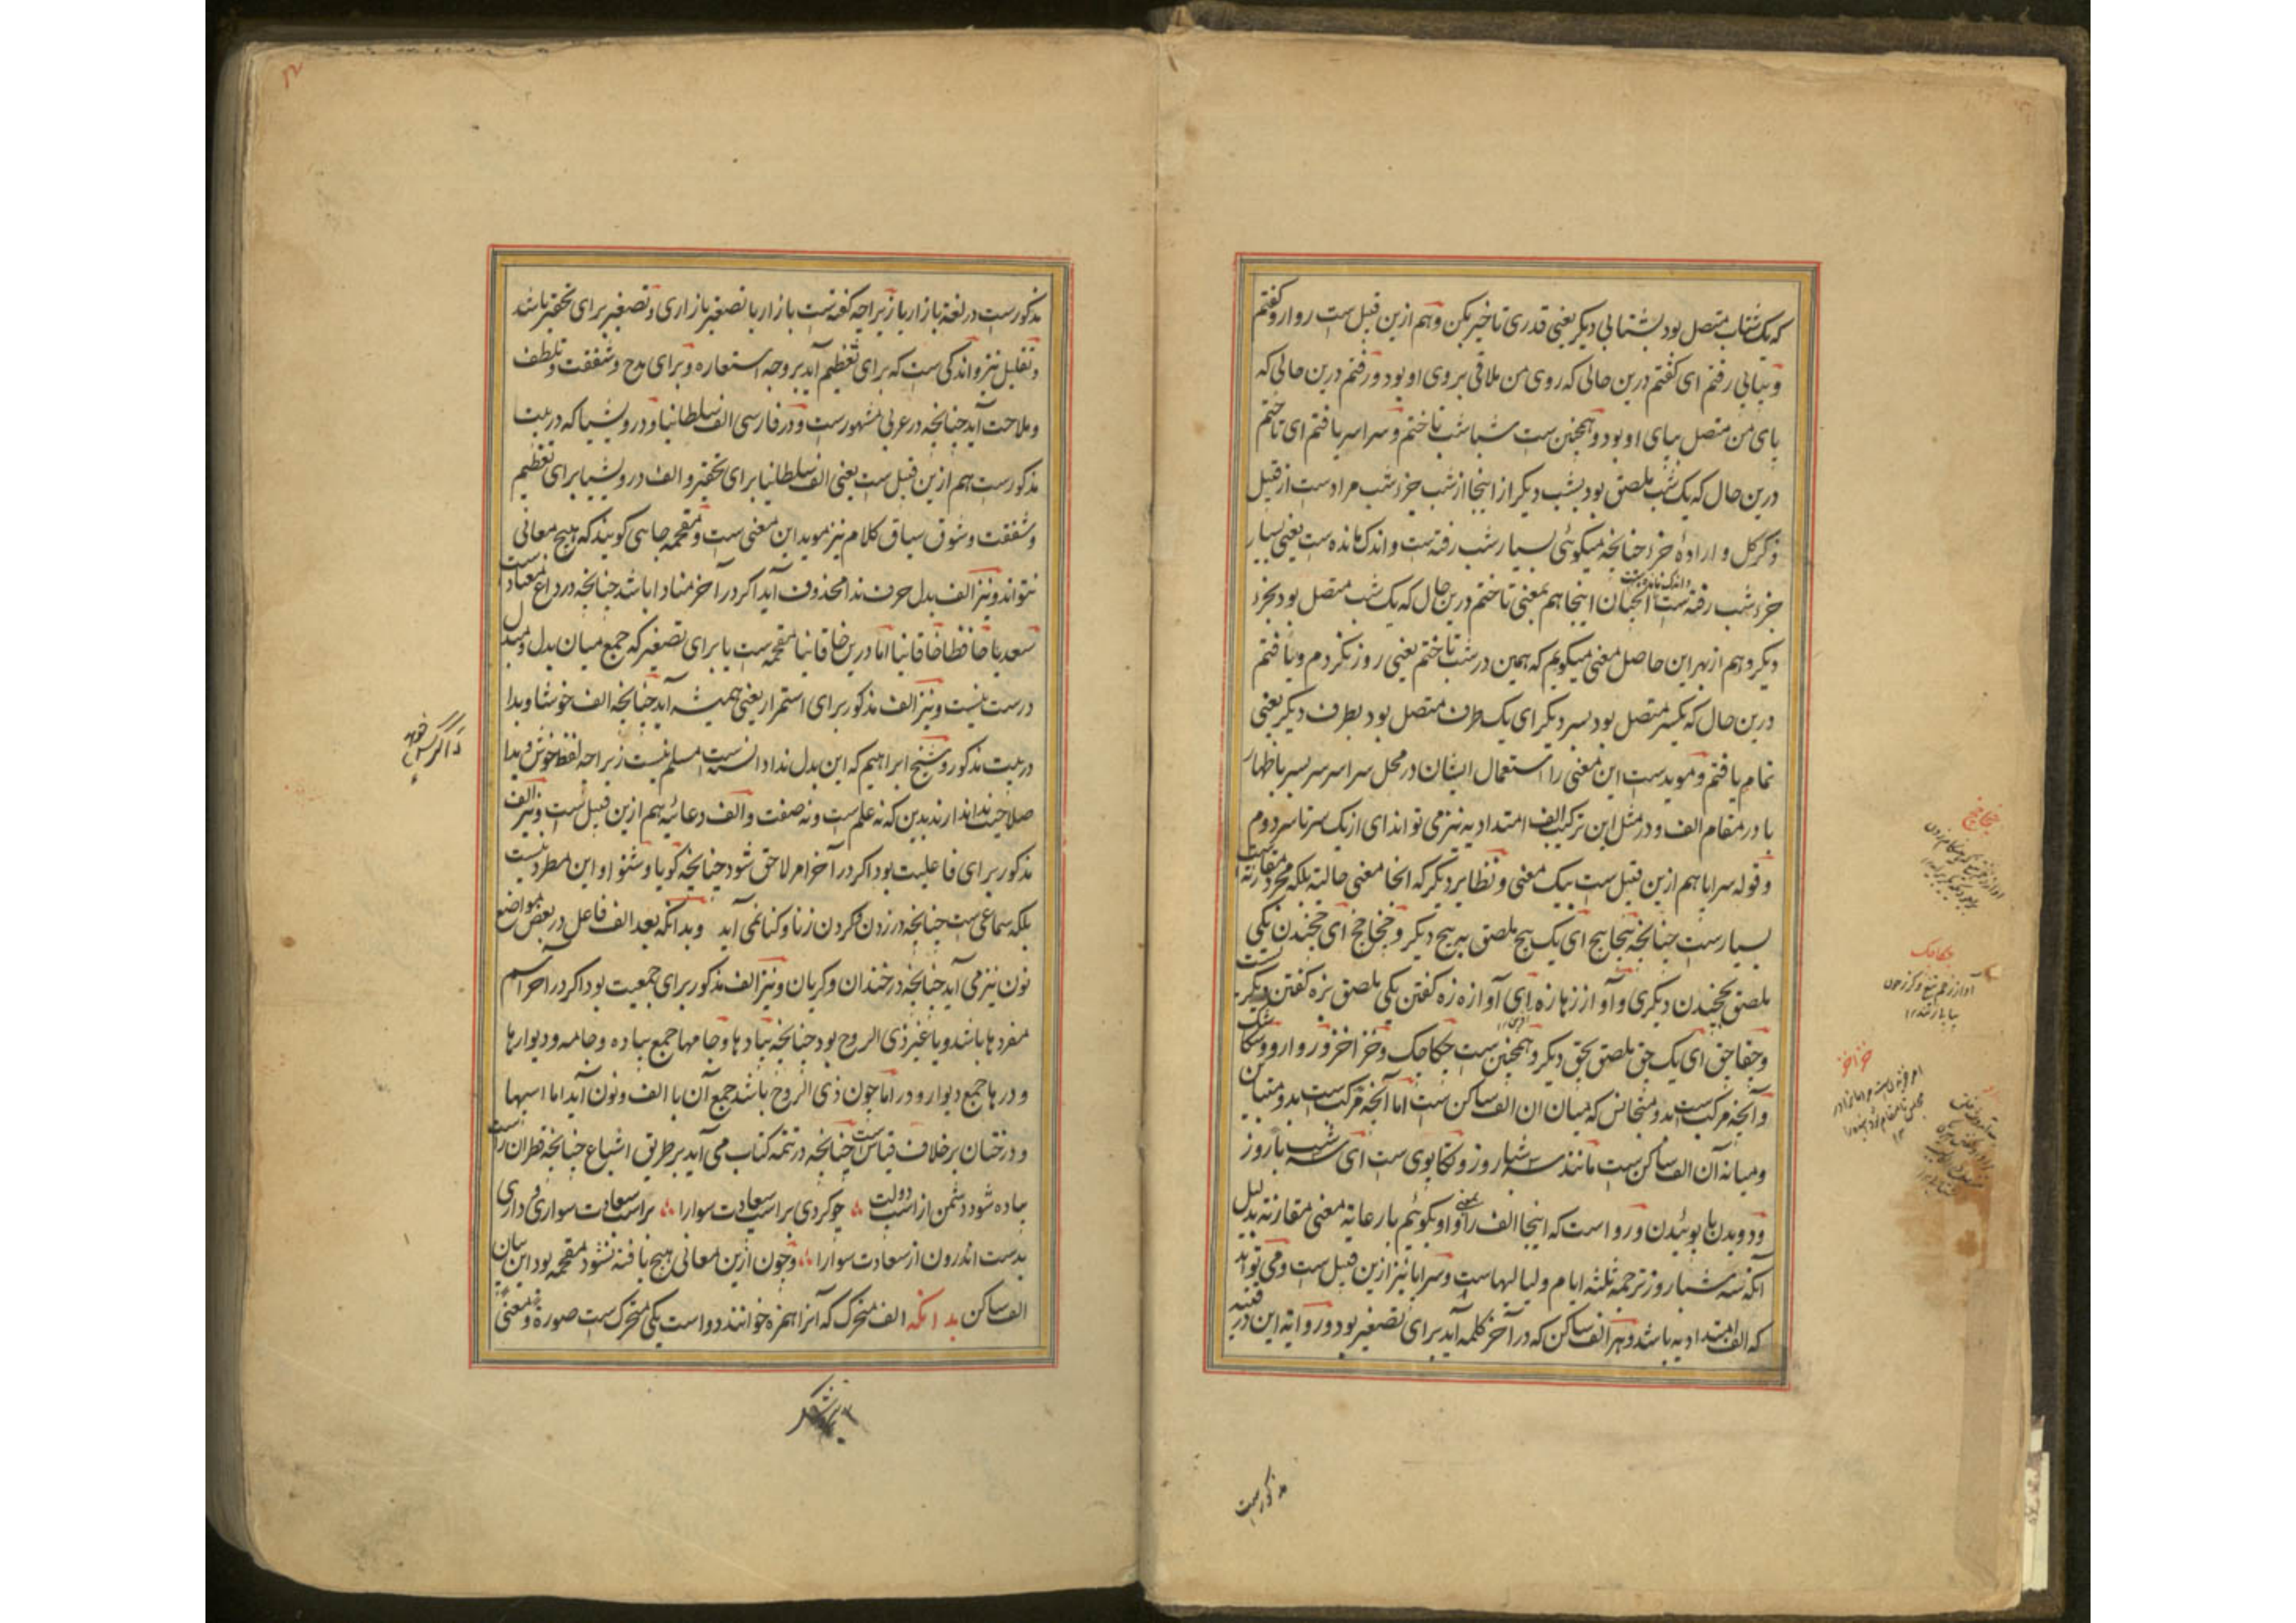 که یک شتاب متصل بود بشتابی دیگر یعنی قدری تاخیر مکن و هم ازین قبیل ست روارو گفتم
و بیابی رفتم ای گفتم درین حالی که روی من ملاقی بروی او بود و رفتم درین حالی که
پای من متصل بپای او بود و همچنین ست شباشب تاختم و سراسر یافتم ای تاختم
درین حال که یک شب ملصق بود بشب دیگر از اینجا از شب جزء شب مرادست از قبیل
ذکر کل و ارادهٔ جزء چنانچه میگوئی بسیار شب رفته ست و اندک مانده ست یعنی بسیار
جزء شب رفته ست و اندک مانده ست اینجا هم بمعنی تاختم درین حال که یک شب متصل بود بجزء
دیگر و هم از بهر این حاصل معنی میگویم که همین در شب تاختم یعنی روز نکردم و یافتم
درین حال که یکسر متصل بود بسر دیگر ای یک طرف متصل بود بطرف دیگر یعنی
تمام یافتم و مویدست این معنی را استعمال ایشان در محل سراسر سر بسر باظهار
با در مقام الف و در مثل این ترکیب الف امتدادیه نیز می تواند ای از یک سر تا سر دوم
و قوله سراپا هم ازین قبیل ست بیک معنی و نظایر دیگر که آنجا معنی حالیة بلکه مجرد مقارنة ست
بسیارست چنانچه پیچاپیچ ای یک پیچ ملصق به پیچ دیگر و چخاچخ ای چخیدن یکی
ملصق بچخیدن دیگری و آواز زهازه ای آوازه زه گفتن یکی ملصق بزه گفتن دیگر ست
و چقاچق ای یک چق ملصق بچق دیگر و همچنین ست چکاچک و خزاخز و روارو
و آنچه مرکب ست بدو متجانس که میان ان الف ساکن ست اما آنچه مرکب ست بدو متباین
و میانه آن الف ساکن ست مانند سه شباروز و تکاپوی ست ای سه شب با روز
و دویدن با پوئیدن و رواست که اینجا الف را بمعنی واو بگوئیم با رعایة معنی مقارنة بدلیل
آنکه سه شباروز ترجمه ثلثه ایام و لیالیها ست و سراپا نیز ازین قبیل ست و می تواند
که الف امتدادیه باشد و هر الف ساکن که در آخر کلمه آید برای تصغیر بود و روایة این در قنیه
مذکورست
چخاچخ
چکاچک
آواز زخم تیغ و گرز چون
خزاخز
مذکورست در لغة بازاریا زیراچه گفته ست بازاریا تصغیر بازاری و تصغیر برای تحقیر باشد
و تقلیل نیز و اندکی ست که برای تعظیم آید بر وجه استعاره و برای مدح و شفقت و تلطف
و ملاحت آید چنانچه در عربی مشهورست و در فارسی الف سلطانیا و درویشیا که در بیت
مذکورست هم ازین قبیل ست یعنی الف سلطانیا برای تحقیر و الف درویشیا برای تعظیم
و شفقت و شوق سیاق کلام نیز موید این معنی ست و مقحمه جایی گویند که هیچ معانی
نتواند و نیز الف بدل حرف ندا محذوف آید اگر در آخر منادا باشد چنانچه در
سعدیا حافظا خاقانیا اما درین خاقانیا مقحمه ست یا برای تصغیر که جمع میان بدل و مبدل
درست نیست و نیز الف مذکور برای استمرار یعنی همیشه آید چنانچه الف خوشا و بدا
در بیت مذکور و شیخ ابراهیم که این بدل ندا دانسته است مسلم نیست زیراچه لفظ خوش و بدا
صلاحیت ندا ندارند بدین که نه علم ست و نه صفت و الف دعائیه هم ازین قبیل ست و نیز الف
مذکور برای فاعلیت بود اگر در آخر امر لاحق شود چنانچه گویا و شنوا و این مطرد نیست
بلکه سماعی ست چنانچه در زدن و کردن زنا و کنا نمی آید و بدانکه بعد الف فاعل در بعض مواضع
نون نیز می آید چنانچه در خندان و گریان و نیز الف مذکور برای جمعیت بود اگر در آخر اسم
مفرد ها باشد و یا غیر ذی الروح بود چنانچه پیادها و جامها جمع پیاده و جامه و دیوارها
و درها جمع دیوار و در اما چون ذی الروح باشد جمع آن با الف و نون آید اما اسپها
و درختان بر خلاف قیاس ست چنانچه در تتمه کتاب می آید بر طریق اشباع چنانچه قطران راست
پیاده شود دشمن از اسب دولت چو کردی بر اسب سعادت سوارا بر اسب سعادت سواری و داری
بدست اندرون از سعادت سوارا و چون ازین معانی هیچ یافته نشود مقحمه بود این بیان
الف ساکن بدانکه الف متحرک که آنرا همزه خوانند دو است یکی متحرک ست صورة و معنیً